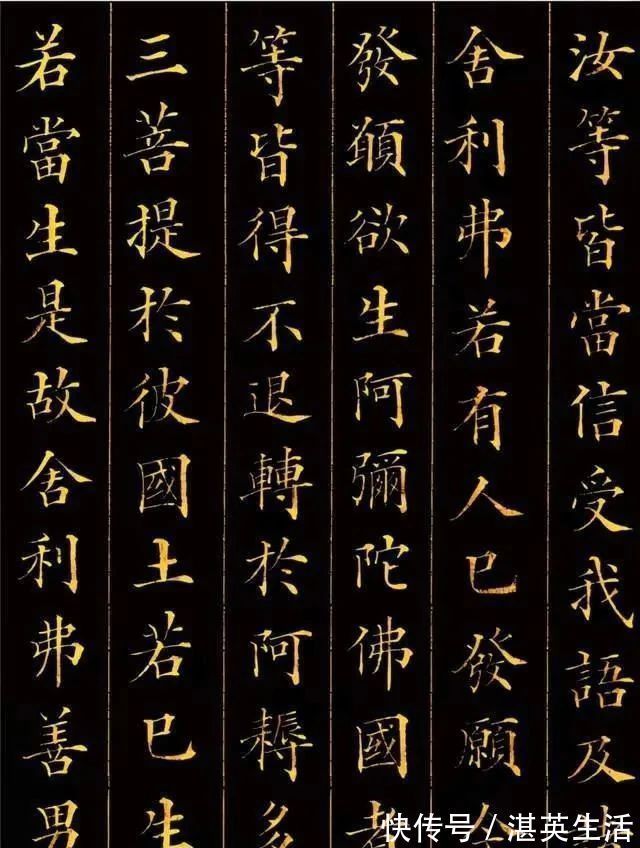 汝等皆當信受我語及
舍利弗若有人已發願今
發願欲生阿彌陀佛國者
等皆得不退轉於阿耨多
三菩提於彼國土若已生
若當生是故舍利弗善男
快传号／湛英生活